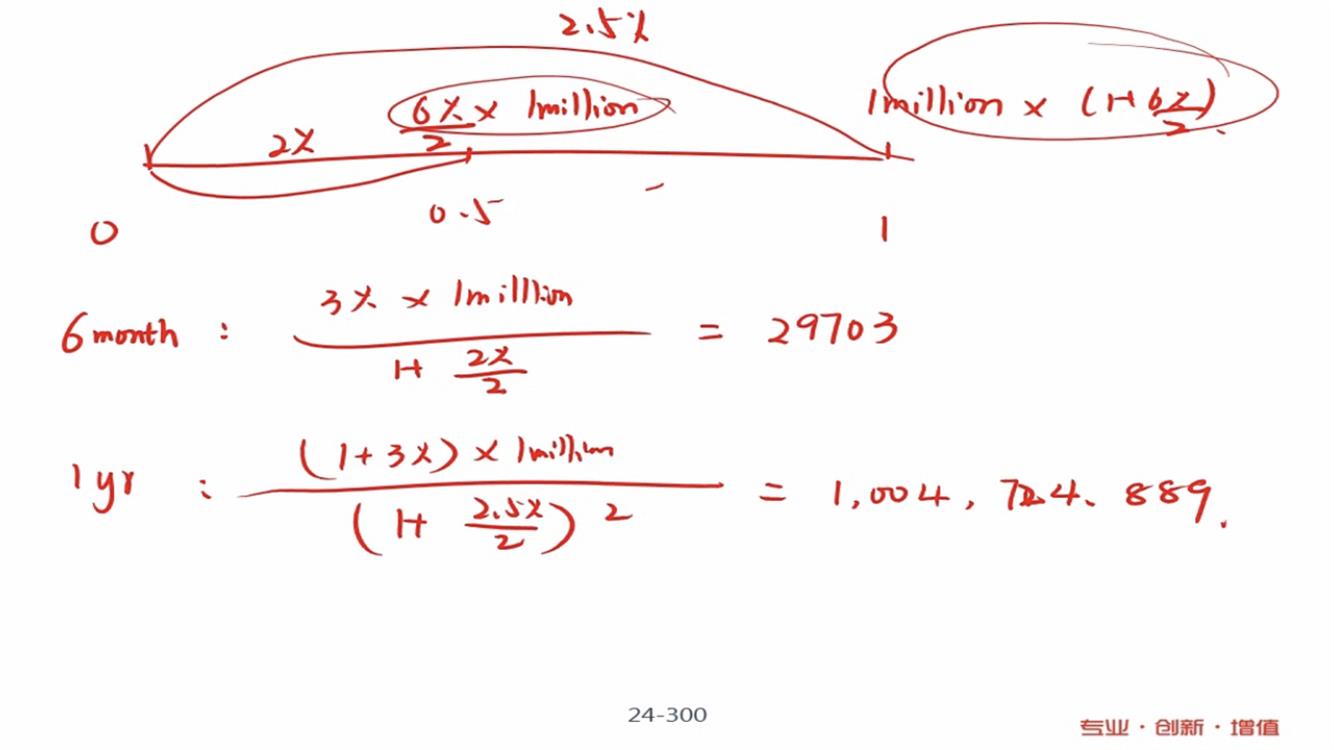 2.5%
6%/2 × 1million
1million × (1+6%/2).
2%
0.5
0
1
6month : 3% × 1million / 1+ 2%/2 = 29703
1yr : (1+3%) × 1million / (1+ 2.5%/2)2 = 1,004,724.889.
24-300
专业·创新·增值